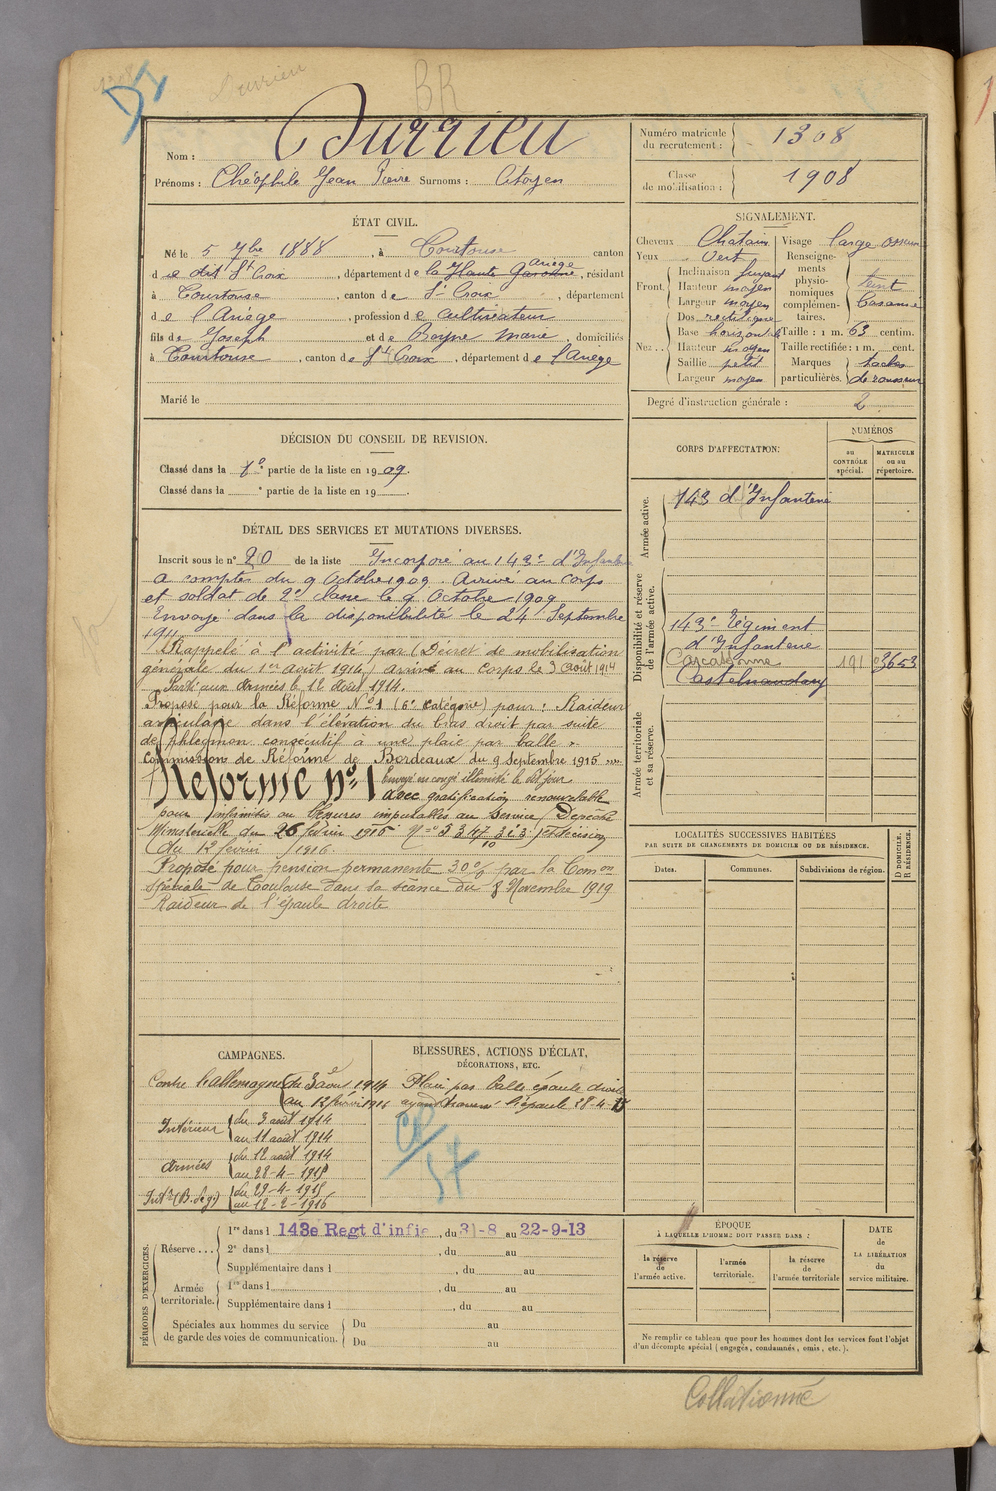 Durrieu
BR
Nom : Durrieu
Prénoms : Théophile Jean Pierre Surnoms : Citoyen
Numéro matricule du recrutement : 1308
Classe de mobilisation : 1908
ÉTAT CIVIL.
Né le 5 7bre 1888, à Courtouse canton
de dit Ste Croix, département de la Haute Garonne Ariège, résidant
à Courtouse, canton de Ste Croix, département
de l'Ariège, profession de cultivateur
fils de Joseph et de Marie, domiciliés
à Courtouse, canton de Ste Croix, département de l'Ariège
Marié le
SIGNALEMENT.
Cheveux Chatain
Yeux Vert
Front. Inclinaison fuyant
Hauteur moyen
Largeur moyen
Nez.. Dos rectiligne
Base horizontale
Hauteur moyen
Saillie petit
Largeur moyen
Visage large osseux
Renseignements physionomiques complémentaires. teint basané
Taille : 1 m. 63 centim.
Taille rectifiée : 1 m. cent.
Marques particulières. taches de rousseur
Degré d'instruction générale : 2
DÉCISION DU CONSEIL DE REVISION.
Classé dans la 1e partie de la liste en 1909.
Classé dans la e partie de la liste en 19 .
DÉTAIL DES SERVICES ET MUTATIONS DIVERSES.
Inscrit sous le n° 20 de la liste Incorporé au 143e d'Infanterie
a compter du 9 Octobre 1909. Arrivé au corps
et soldat de 2e classe le 9 Octobre 1909
Envoyé dans la disponibilité le 24 Septembre
1911.
Rappelé à l'activité par (Décret de mobilisation
générale du 1er août 1914) arrivé au Corps le 3 Août 1914
Parti aux Armées le 12 Août 1914.
Proposé pour la Réforme N° 1 (6e catégorie) pour : Raideur
articulaire dans l'élévation du bras droit par suite
de phlegmon consécutif à une plaie par balle.
Commission de Réforme de Bordeaux du 9 septembre 1915
Réformé n° 1 Envoyé en congé illimité le dit jour
avec gratification renouvelable
pour infirmités ou blessures imputables au Service Dépêche
Ministérielle du 26 février 1916 N° 53.47 313 et décision
(du 12 février 1916.
Proposé pour pension permanente 30% par la Comon
spéciale de Toulouse dans sa séance du 8 Novembre 1919
Raideur de l'épaule droite
CORPS D'AFFECTATION:
NUMÉROS
au CONTRÔLE spécial.
MATRICULE ou au répertoire.
Armée active.
143 d'Infanterie
Disponibilité et réserve de l'armée active.
143e Régiment
d'Infanterie
Carcassonne 191 3653
Castelnaudary
Armée territoriale et sa réserve.
LOCALITÉS SUCCESSIVES HABITÉES
PAR SUITE DE CHANGEMENTS DE DOMICILE OU DE RÉSIDENCE.
Dates. Communes. Subdivisions de région. D DOMICILE. R RÉSIDENCE.
CAMPAGNES.
Contre l'allemagne du 3 août 1914
au 12 février 1916
Intérieur du 3 août 1914
au 11 août 1914
Armées du 12 août 1914
au 28-4-1915
Intr (B. de g.) du 29-4-1915
au 12-2-1916
BLESSURES, ACTIONS D'ÉCLAT,
DÉCORATIONS, ETC.
Plaie par balle épaule droite
ayant traversé l'épaule 28-4-15
PÉRIODES D'EXERCICES.
Réserve... 1re dans l 143e Regt d'infie, du 31-8 au 22-9-13
2e dans l , du au
Supplémentaire dans l , du au
Armée territoriale. 1re dans l , du au
Supplémentaire dans l , du au
Spéciales aux hommes du service de garde des voies de communication. Du au
Du au
ÉPOQUE
À LAQUELLE L'HOMME DOIT PASSER DANS :
la réserve de l'armée active.
l'armée territoriale.
la réserve de l'armée territoriale
DATE DE LA LIBÉRATION du service militaire.
Ne remplir ce tableau que pour les hommes dont les services font l'objet
d'un décompte spécial (engagés, condamnés, omis, etc.).
Collationné